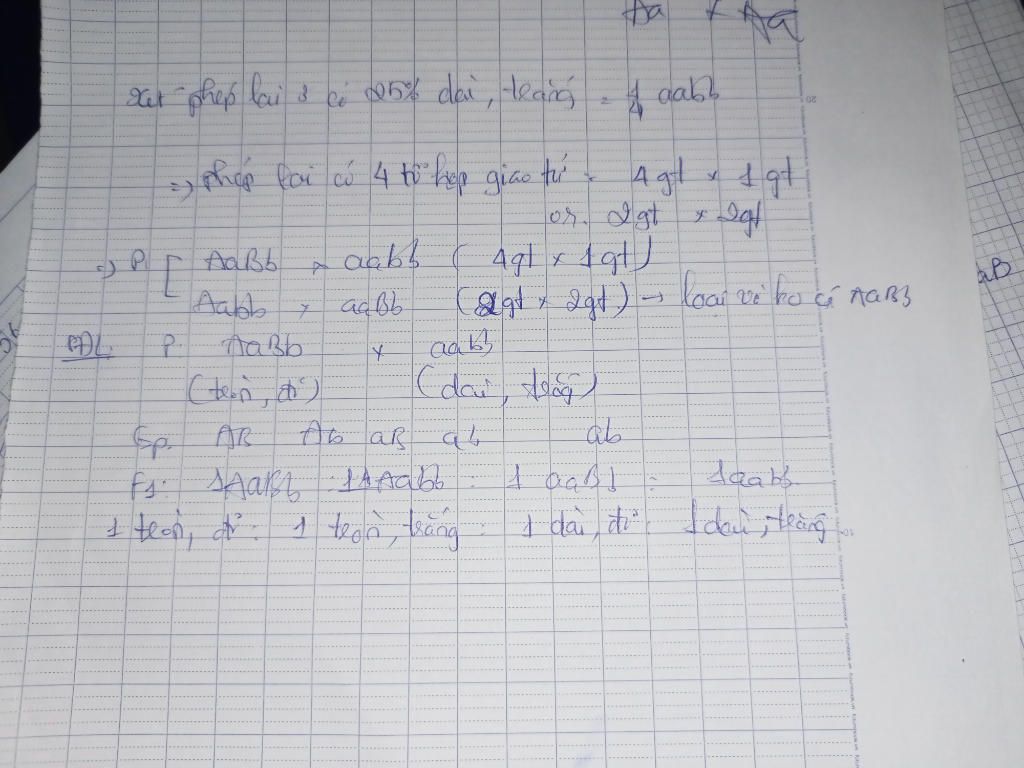 Aa × Aa
Xét phép lai 3 có 25% dài, trắng = 1/4 aabb
=> phép lai có 4 tổ hợp giao tử = 4gt × 1gt
or. 2gt × 2gt
=> P [ AaBb × aabb ( 4gt × 1gt)
Aabb × aaBb (2gt × 2gt) → loại vì ko có AaBb
aB
SĐL P AaBb × aabb
(tròn, đỏ) (dài, trắng)
Gp. AB Ab aB ab ab
F1: 1AaBb : 1Aabb : 1 aaBb : 1aabb
1 tròn, đỏ : 1 tròn, trắng : 1 dài, đỏ : 1 dài, trắng